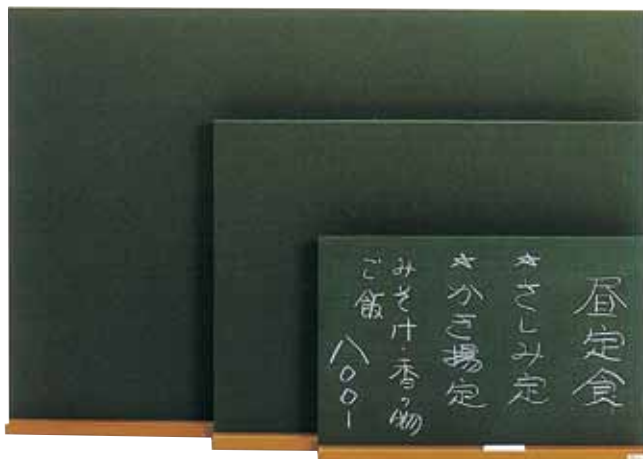 昼定食
☆さしみ定
☆かき揚定
みそ汁・香の物
ご飯
八〇〇ー